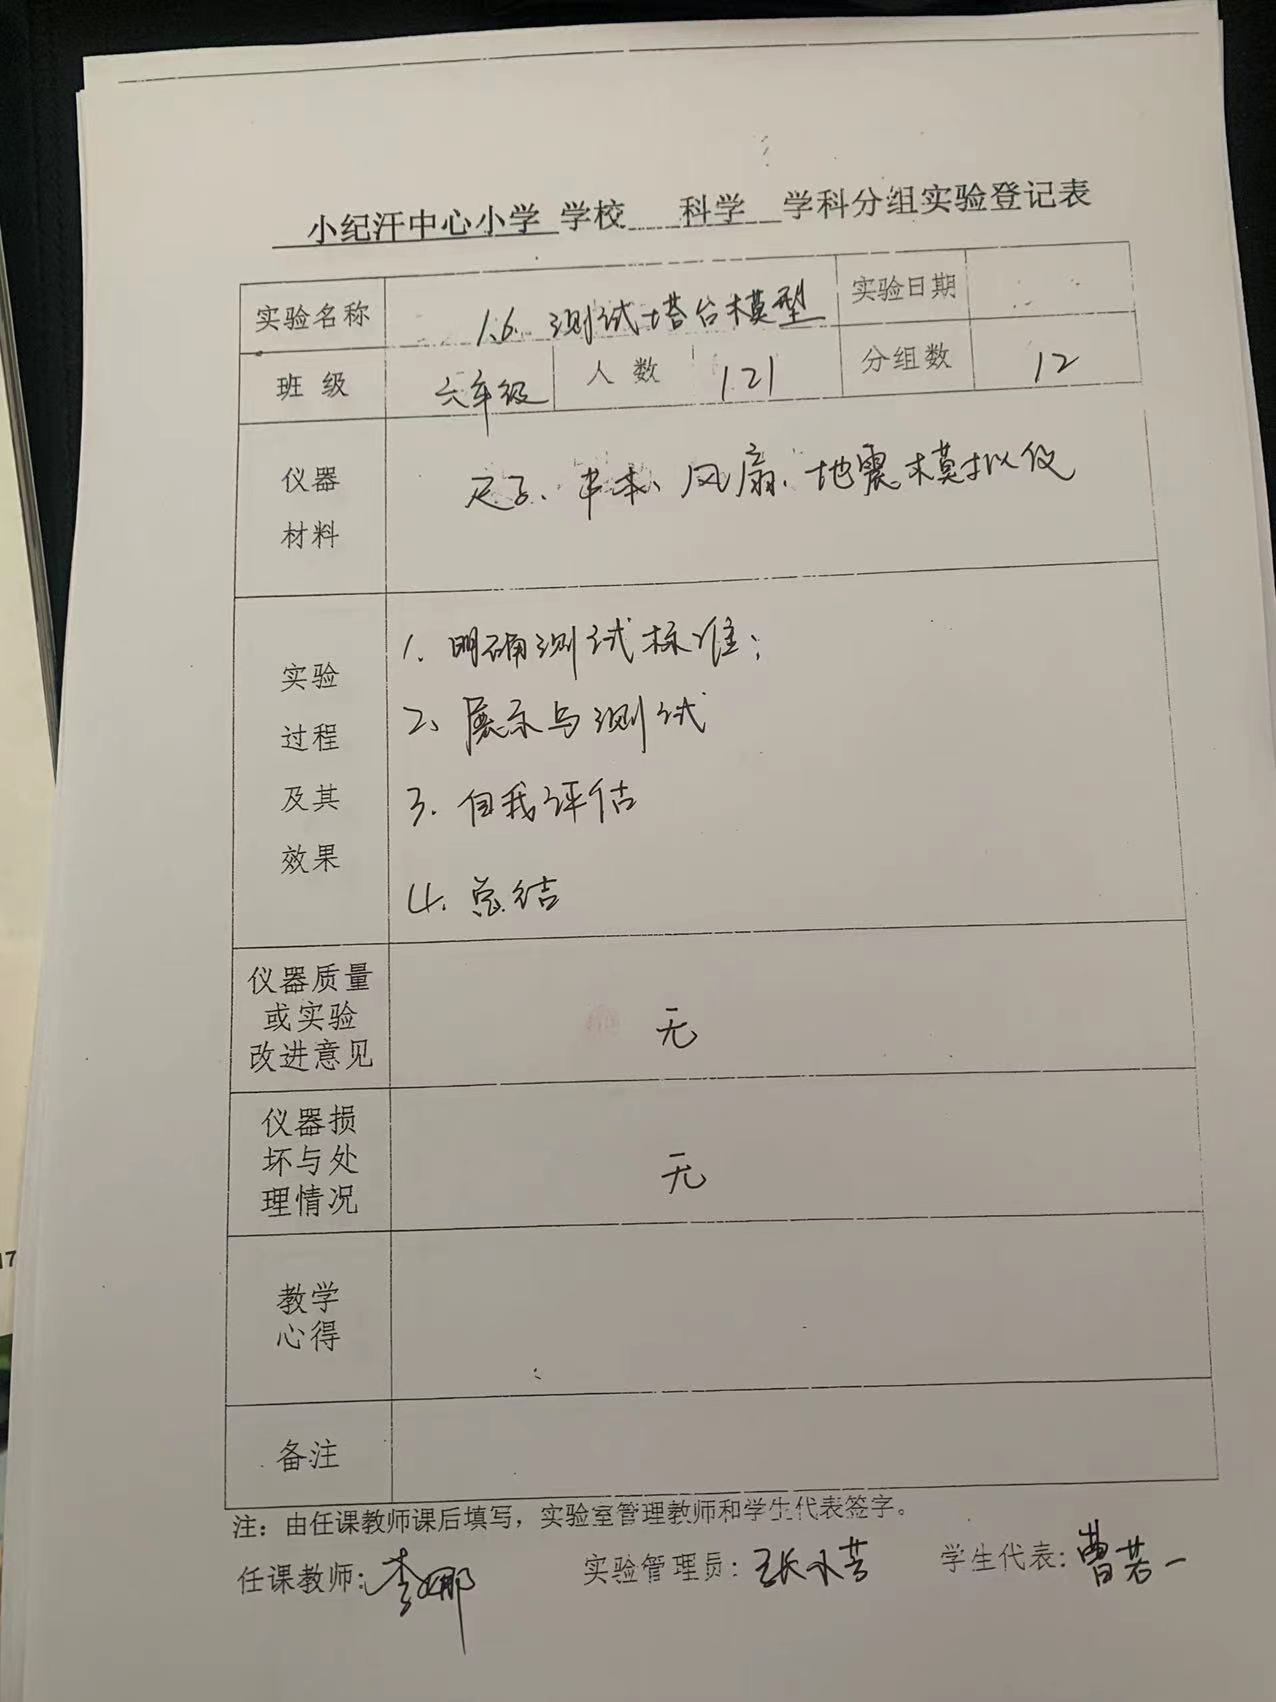 小纪汗中心小学 学校 科学 学科分组实验登记表
实验名称 1.6. 测试塔台模型 实验日期
班 级 六年级 人 数 121 分组数 12
仪器 尺子、书本、风扇、地震模拟仪
材料
实验 1. 明确测试标准;
过程 2、展示与测试
及其 3. 自我评估
效果 4. 总结
仪器质量
或实验 无
改进意见
仪器损
坏与处 无
理情况
教学
心得
备注
注：由任课教师课后填写，实验室管理教师和学生代表签字。
任课教师: 李娜 实验管理员: 张小芸 学生代表: 曹若一
17